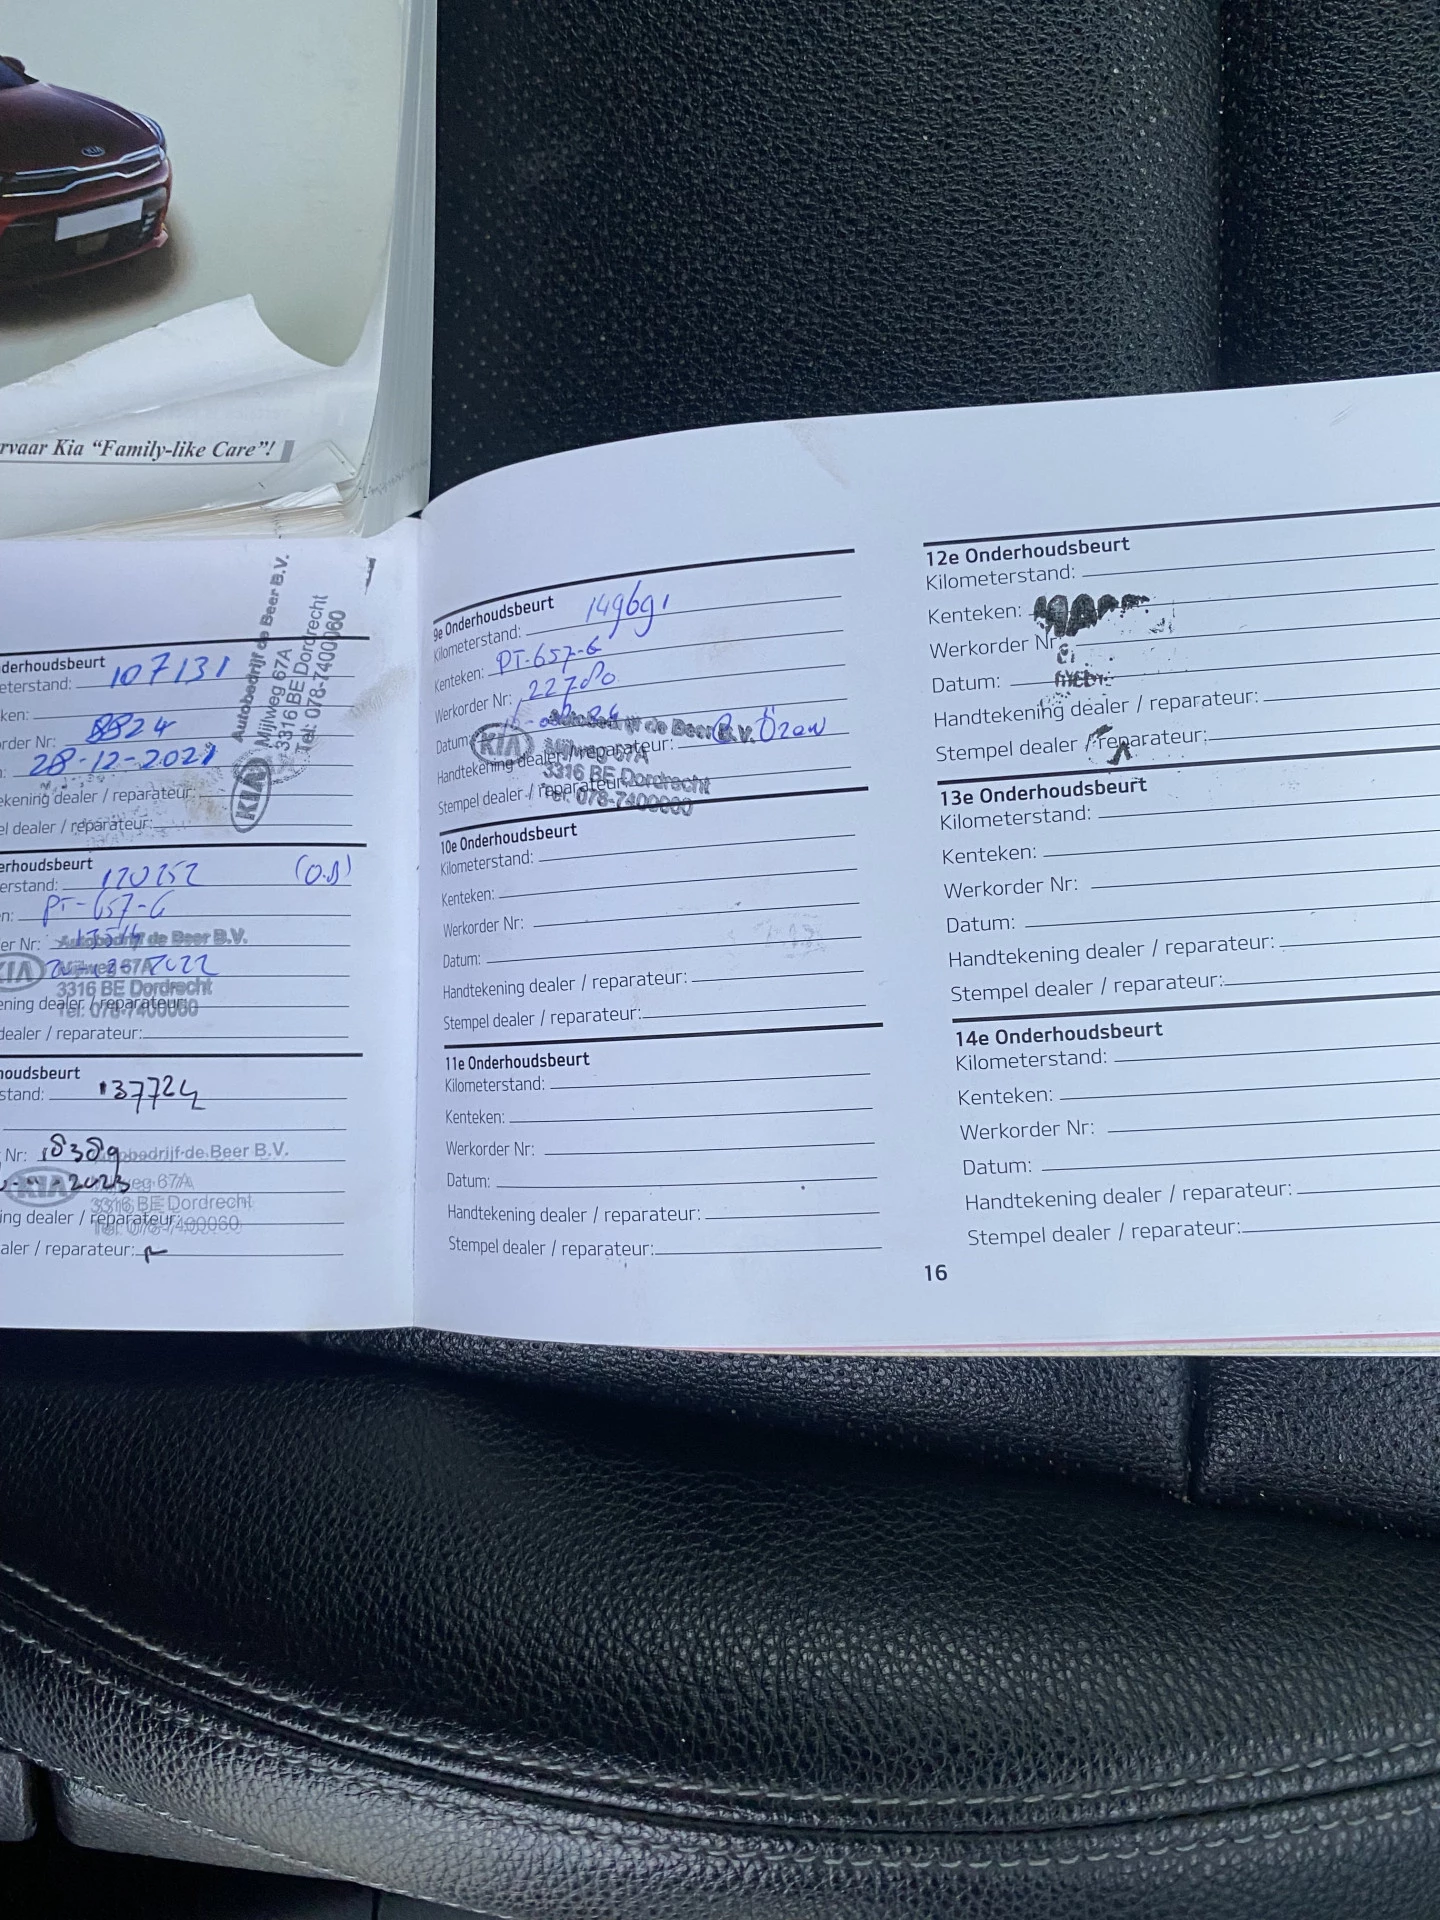 KIA
rvaar Kia “Family-like Care”!
derhoudsbeurt
eterstand: 107131
ken:
order Nr: 8824
n: 28-12-2021
ekening dealer / reparateur:
el dealer / reparateur:
Autobedrijf de Beer B.V.
Mijlweg 67A
3316 BE Dordrecht
Tel: 078-7400060
KIA
erhoudsbeurt
erstand: 120252 (O.B)
n: PT-657-G
er Nr:
Autobedrijf de Beer B.V.
KIA Mijlweg 67A
2022
3316 BE Dordrecht
ening dealer / reparateur:
Tel: 078-7400060
dealer / reparateur:
houdsbeurt
stand: 137724
Nr: 18389
Autobedrijf de Beer B.V.
2023
KIA Mijlweg 67A
3316 BE Dordrecht
ing dealer / reparateur:
Tel: 078-7400060
aler / reparateur:
9e Onderhoudsbeurt
Kilometerstand: 149691
Kenteken: PT-657-G
Werkorder Nr: 22780
Datum:
KIA Autobedrijf de Beer B.V.
Mijlweg 67A
Handtekening dealer / reparateur: Özow
3316 BE Dordrecht
Stempel dealer / reparateur:
Tel: 078-7400060
10e Onderhoudsbeurt
Kilometerstand:
Kenteken:
Werkorder Nr:
Datum:
Handtekening dealer / reparateur:
Stempel dealer / reparateur:
11e Onderhoudsbeurt
Kilometerstand:
Kenteken:
Werkorder Nr:
Datum:
Handtekening dealer / reparateur:
Stempel dealer / reparateur:
12e Onderhoudsbeurt
Kilometerstand:
Kenteken:
Werkorder Nr:
Datum:
Handtekening dealer / reparateur:
Stempel dealer / reparateur:
13e Onderhoudsbeurt
Kilometerstand:
Kenteken:
Werkorder Nr:
Datum:
Handtekening dealer / reparateur:
Stempel dealer / reparateur:
14e Onderhoudsbeurt
Kilometerstand:
Kenteken:
Werkorder Nr:
Datum:
Handtekening dealer / reparateur:
Stempel dealer / reparateur:
16